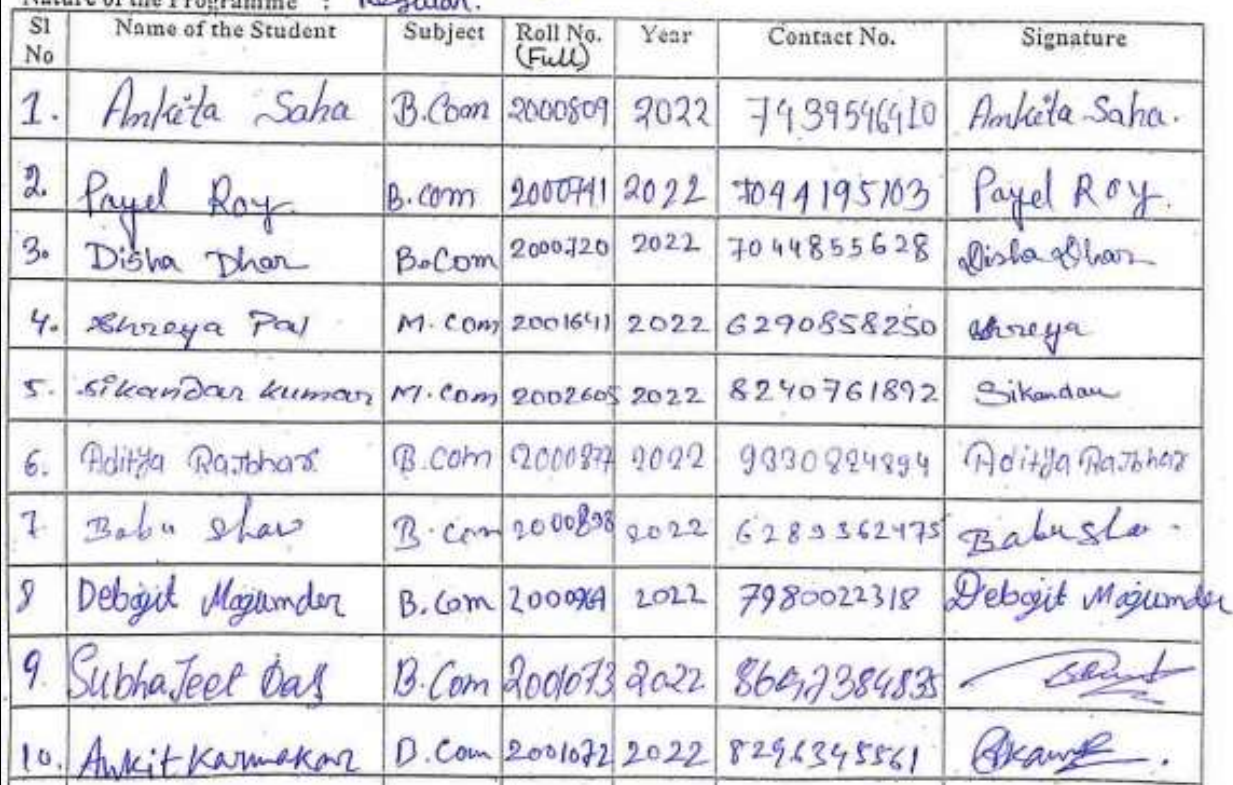 Nature of the Programme : Regular.
Sl No Name of the Student Subject Roll No. (Full) Year Contact No. Signature
1. Ankita Saha B.Com 2000809 2022 7439546410 Ankita Saha.
2. Payel Roy B.com 2000741 2022 7044195103 Payel Roy.
3. Disha Dhar B.Com 2000720 2022 7044855628 Disha Dhar
4. Shreya Pal M.Com 2001641 2022 6290858250 Shreya
5. Sikandar Kumar M.Com 2002605 2022 8240761892 Sikandar
6. Aditya Rajbhar B.Com 2000877 2022 9330824894 Aditya Rajbhar
7 Babu Shaw B.Com 2000898 2022 6289362475 Babu Sha
8 Debojit Mojumder B.Com 2000969 2022 7980022318 Debojit Mojumder
9. SubhaJeet Das B.Com 2001073 2022 8697384835
10. Ankit Karmakar B.Com 2001072 2022 8296345561